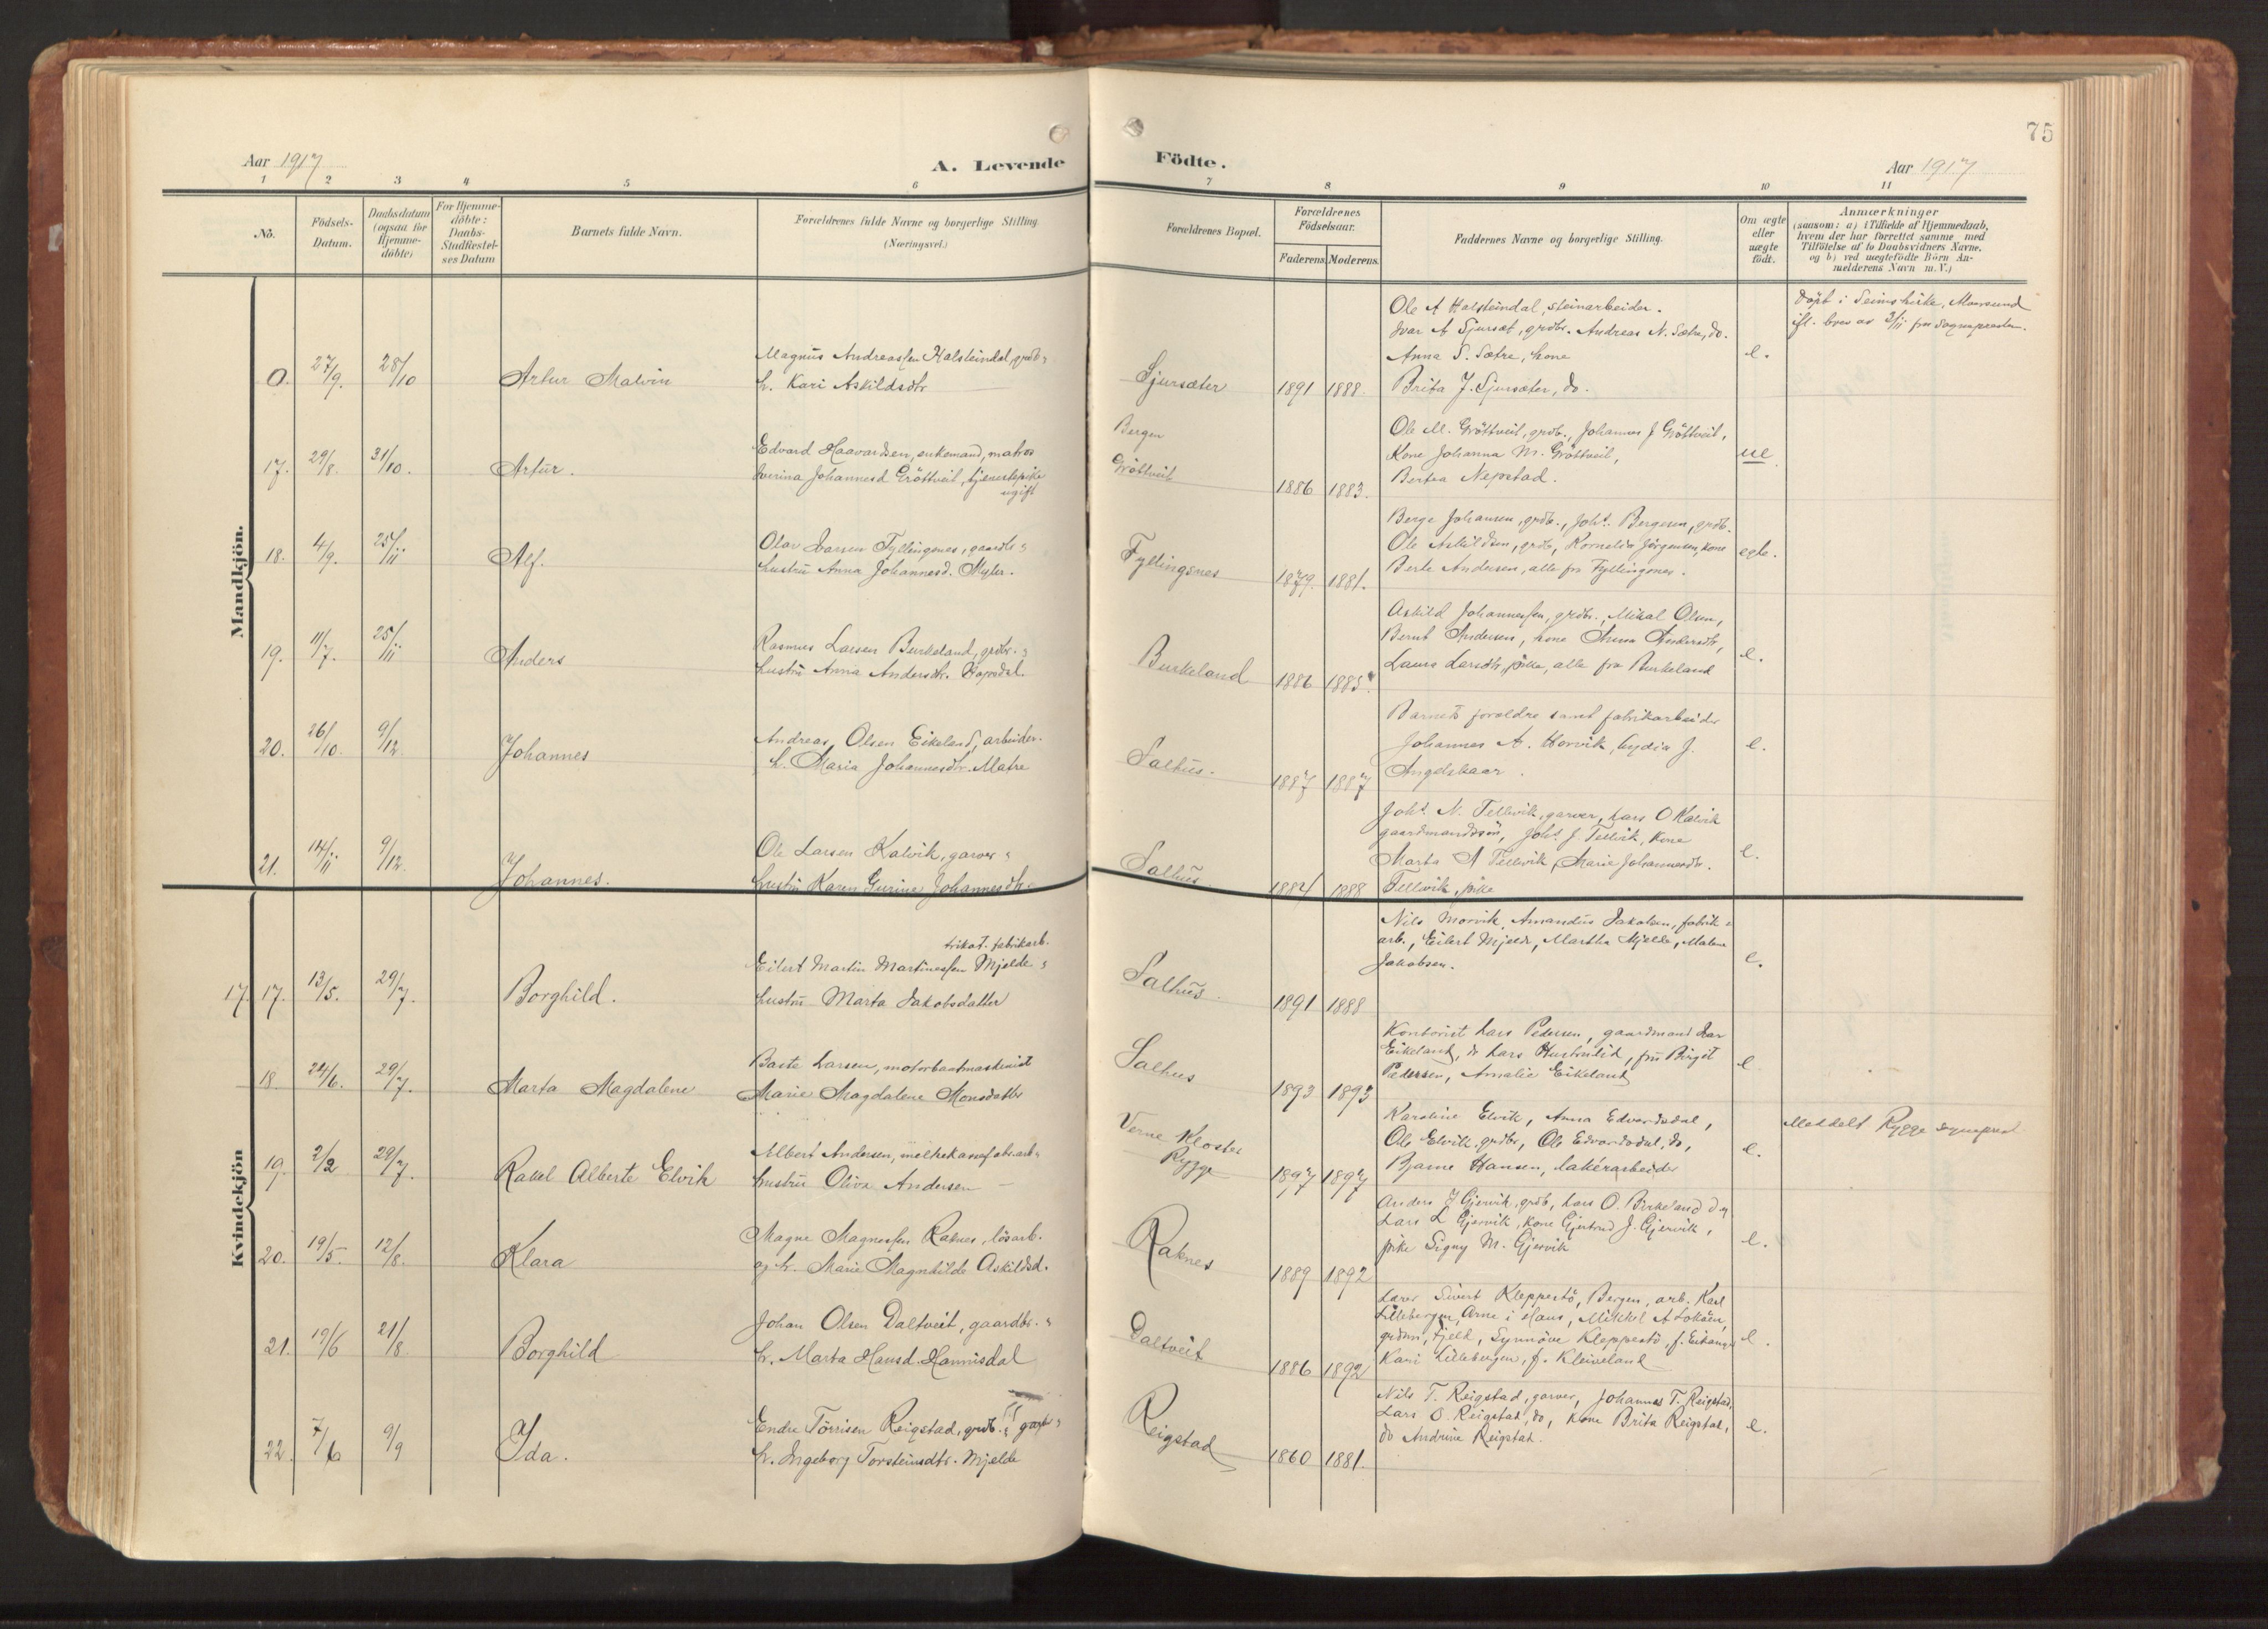 75
Aar 1917
A. Levende Födte.
Aar 1917
1 2 3 4 5 6 7 8 9 10 11
No.
Födsels-
Datum.
Daabsdatum
(ogsaa for
Hjemme-
döbte)
For Hjemme-
döbte:
Daabs-
Stadfæstel-
ses Datum
Barnets fulde Navn.
Forældrenes fulde Navne og borgerlige Stilling.
(Næringsvei.)
Forældrenes Bopæl.
Forældrenes
Födselsaar.
Faderens. Moderens.
Faddernes Navne og borgerlige Stilling.
Om ægte
eller
uægte
födt.
Anmærkninger
(saasom: a) i Tilfælde af Hjemmedaab,
hvem der har forrettet samme med
Tilföielse af to Daabsvidners Navne.
og b) ved uægtefödte Börn An-
melderens Navn m. V.)
Mandkjön.
0. 27/9. 28/10 Artur Malvin
Magnus Andreassen Halsteindal, grdb.
h. Kari Askildsdtr
Sjursæter 1891 1888.
Ole A Halsteindal, steinarbeider.
Ivar A Sjursæt, grdbr. Andreas N. Sætre, do.
Anna S. Sætre, kone
Brita J. Sjursæter, do.
e.
Döpt i Seims kirke,
ifl. brev av 3/11 fra sognepresten.
17. 29/8. 31/10. Artur.
Edvard Haavardsen, enkemand, matros
Iverina Johannesd Gröttveit, tjenestepike
ugift
Bergen
Gröttveit
1886 1883.
Ole M. Gröttveit, grdb., Johannes J Gröttveit,
Kone Johanna M. Gröttveit,
Bertea Nepstad.
ue.
18. 4/9. 25/11 Alf.
Olav Larsen Fyllingsnes, gaardb.
hustru Anna Johannesd. Myter.
Fyllingsnes 1879. 1881.
Berge Johansen, grdb., Johs. Bergesen, grdb.
Ole Askildsen, grdb, Kornelia Jörgensen, kone
Berte Andersen, alle fra Fyllingsnes.
egte.
19. 11/7. 25/11 Anders
Rasmus Larsen Burkeland, grdbr.
hustru Anna Andersdtr.
Burkeland 1886 1885.
Askild Johannessen, grdbr., Mikal Olsen,
Bernt Andersen, kone Anna Andersdtr,
Laura Larsdtr, pike, alle fra Burkeland
e.
20. 26/10. 9/12. Johannes
Andreas Olsen Eikeland, arbeider.
h. Maria Johannesdtr. Matre
Salhus. 1887 1887
Barnets foreldre samt fabrikarbeider
Johannes A. Horvik, Lydia J.
Angelskaar.
e.
21. 14/11 9/12. Johannes.
Ole Larsen Kalvik, garver
hustru Karen Gurine Johannesdtr.
Salhus. 1884 1888
Johs. N. Tellevik, garver, Lars O Kalvik
gaardmandssön, Johs. J. Tellvik, kone
Marta A Tellevik, Marie Johannesdtr.
Tellevik, pike
e.
Kvindekjön
17. 17. 13/5. 29/7. Borghild.
trikot. fabrikarb.
Eilert Martin Martinessen Mjelde
hustru Marta Jakobsdatter
Salhus. 1891 1888
Nils Morvik, Amandus Jakobsen, fabrik
arb., Eilert Mjelde, Martha Mjelde, Malene
Jakobsen.
e.
18 24/6. 29/7. Marta Magdalene
Baste Larsen, motorbaatmaskinist
Marie Magdalene Monsdatter
Salhus 1893 1893
Kontorist Lars Pedersen, gaardmand Lar
Eikeland, do Lars, fru Birgit
Pedersen, Amalie Eikeland
e
19. 2/2 29/7. Rakel Alberte Elvik
Albert Andersen, melkekansfabr.arb.
hustru Oliva Andersen
Verne Kloster
Rygge
1897 1897
Karoline Elvik, Anna Edvardsdal,
Ole Elvik, grdbr, Ole Edvardsdal, do,
Bjarne Hansen, lakérarbeider
e.
Meddelt Rygge sogneprest
20. 19/5. 12/8. Klara
Magne Magnessen Raknes, lösarb.
og h. Marie Magnhilde Askildsd.
Raknes 1889 1892
Anders J Gjervik, grdb, Lars O. Birkeland do,
Lars L Gjervik, kone Gjertrud J. Gjervik,
pike Signy M. Gjervik
e.
21. 19/6 21/8 Borghild
Johan Olsen Daltveit, gaardbr.
h. Marta Hansd. Hannisdal
Daltveit 1886 1892
Lærer Sivert Kleppestö, Bergen, arb. Karl
Lillebergen, Arne i Haus, Mikkel A Loköen,
grdmn, Fjeld, Synnöve Kleppestö, f. Eikanger
Kari Lillebergen, f. Kleiveland
e.
22. 7/6 9/9 Ida.
Endre Törrisen Reigstad, grdb. garver
h. Ingeborg Torsteinsdtr. Mjelde
Reigstad 1860 1881.
Nils T. Reigstad, garver, Johannes T. Reigstad,
Lars O. Reigstad, do, kone Brita Reigstad,
do Andrine Reigstad.
e.